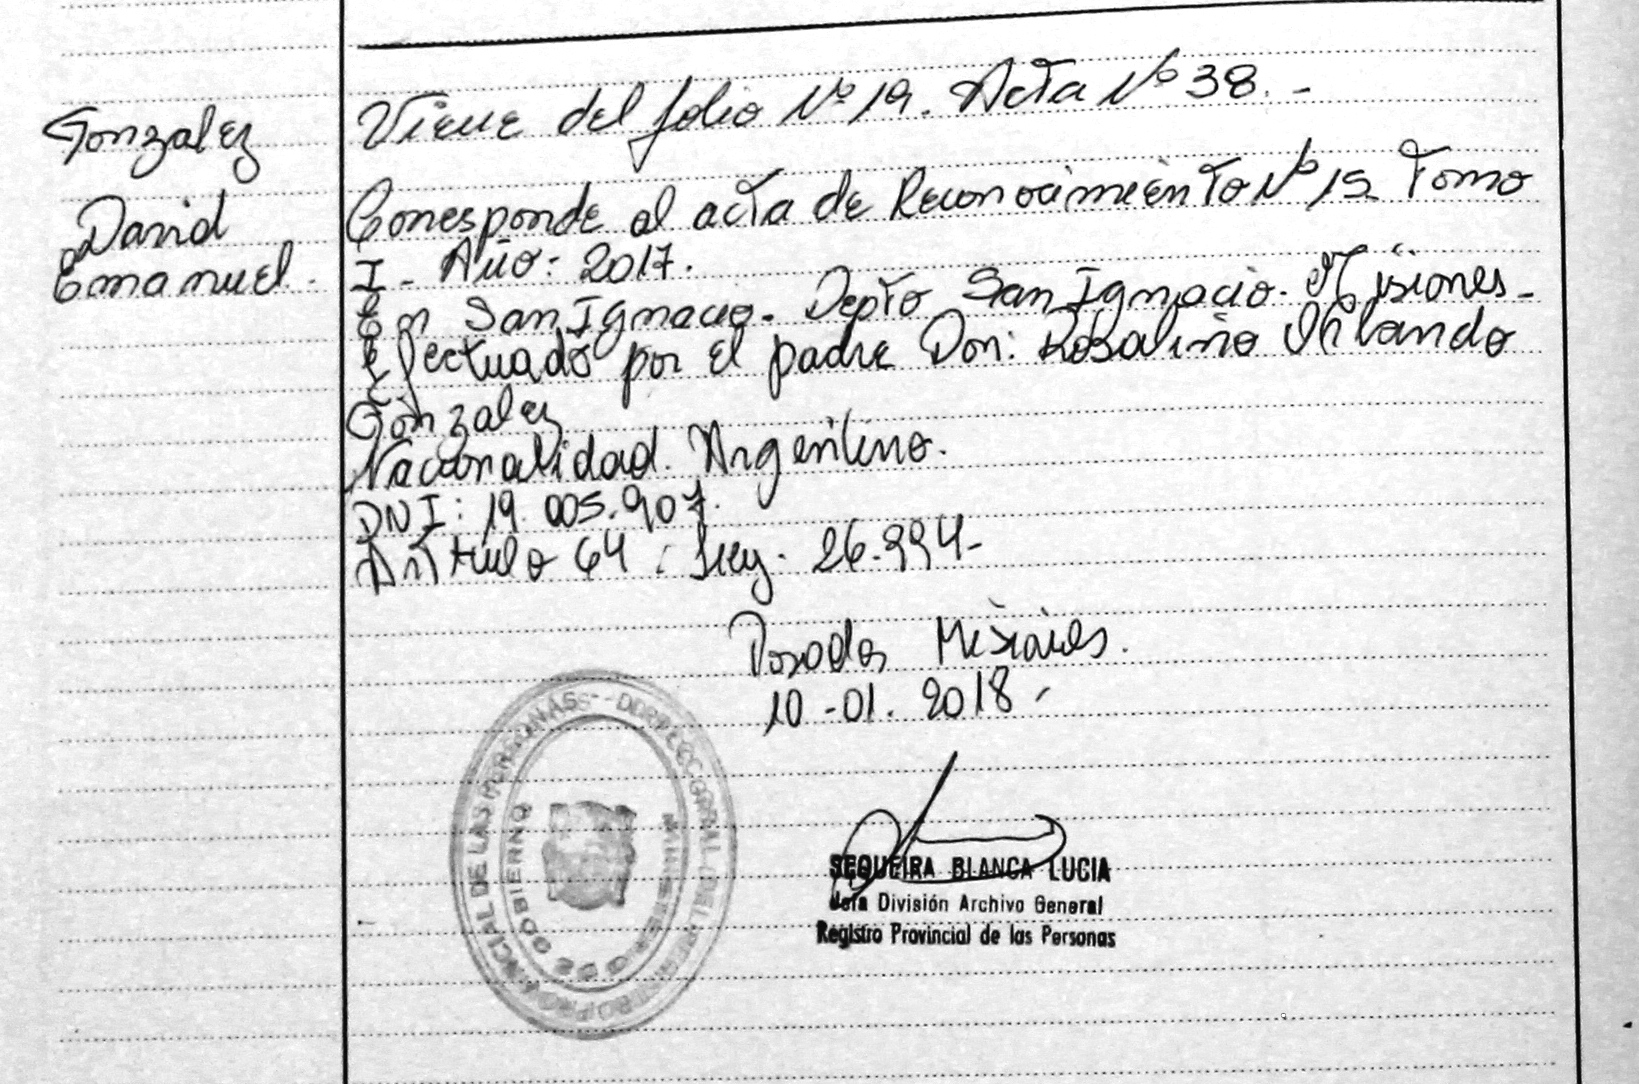 Gonzalez
David
Emanuel.
Viene del folio Nº 19. Acta Nº 38. -
Corresponde al acta de Reconocimiento Nº 15 Tomo
I - Año: 2017.
En San Ignacio. Depto San Ignacio. Misiones -
Efectuado por el padre Don: Rosalino
Gonzalez
Nacionalidad. Argentino.
DNI: 19.005.907.
Artículo 64. Ley. 26.994-
Posadas Misiones.
10-01. 2018
SEQUEIRA BLANCA LUCIA
Jefa División Archivo General
Registro Provincial de las Personas
PROVINCIAL DE LAS PERSONAS
MINISTERIO DE GOBIERNO